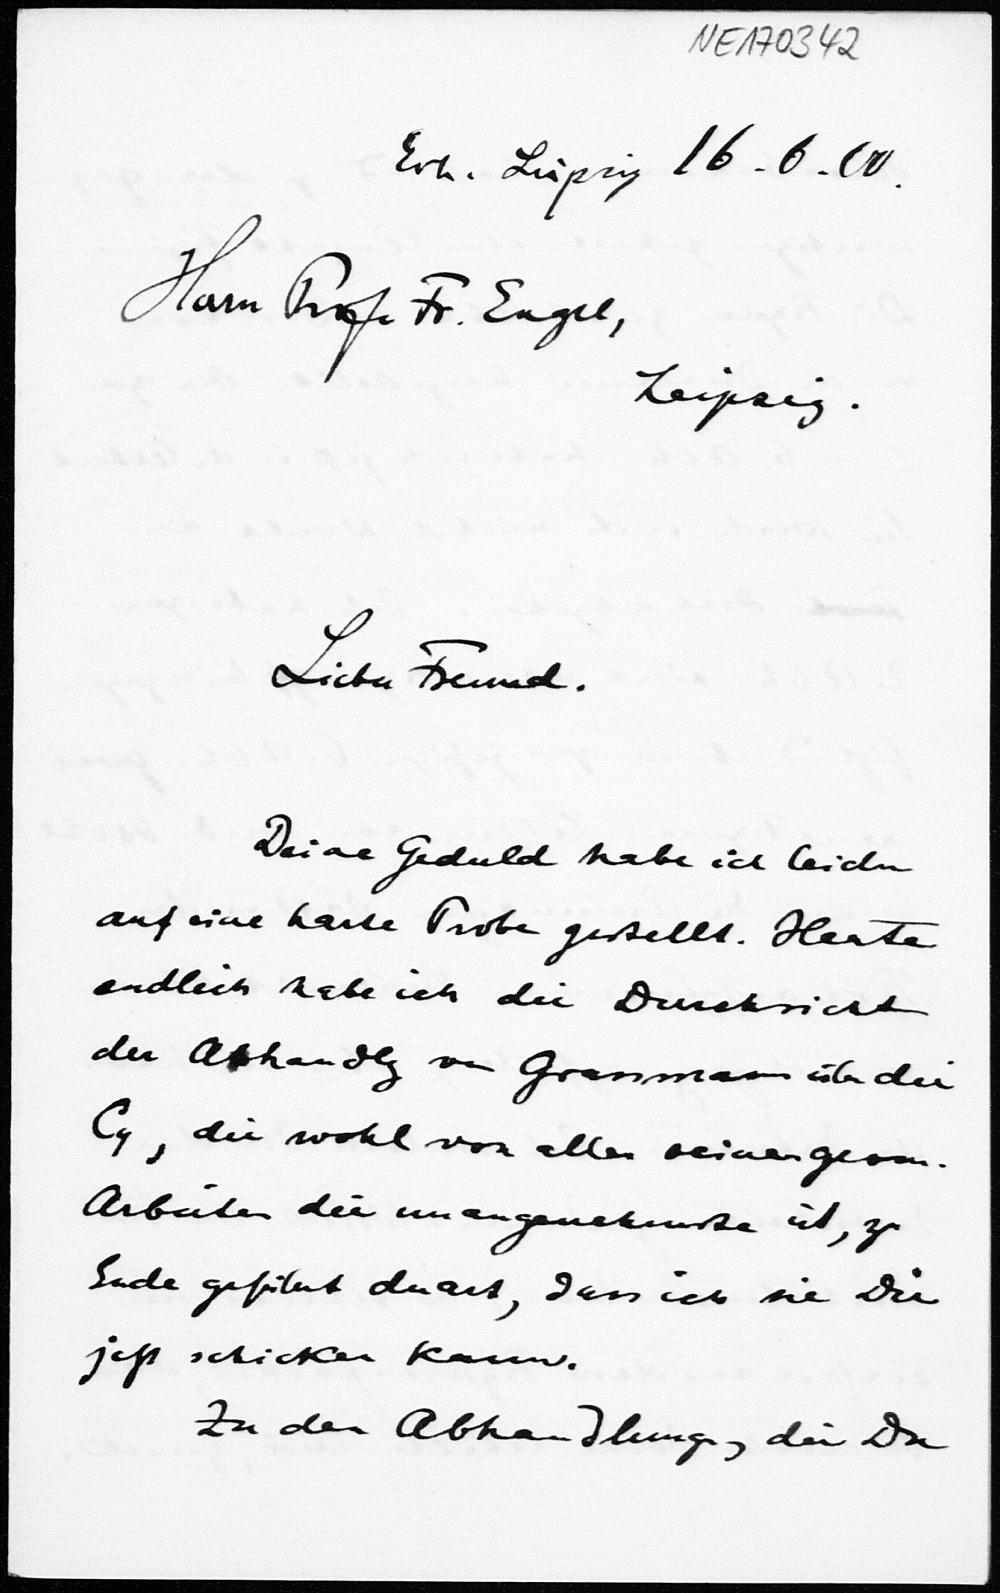 NE170342
Leipzig 16.6.00.
Herrn Prof. Fr. Engel,
Leipzig.
Lieber Freund.
Deine Geduld habe ich leider
auf eine harte Probe gestellt. Heute
endlich habe ich die Durchsicht
der Abhandlg von Grassmann über die
C4, die wohl von allen seinen geom.
Arbeiten die unangenehmste ist, zu
Ende geführt derart, dass ich sie Dir
jetzt schicken kann.
Zu den Abhandlungen, die Du